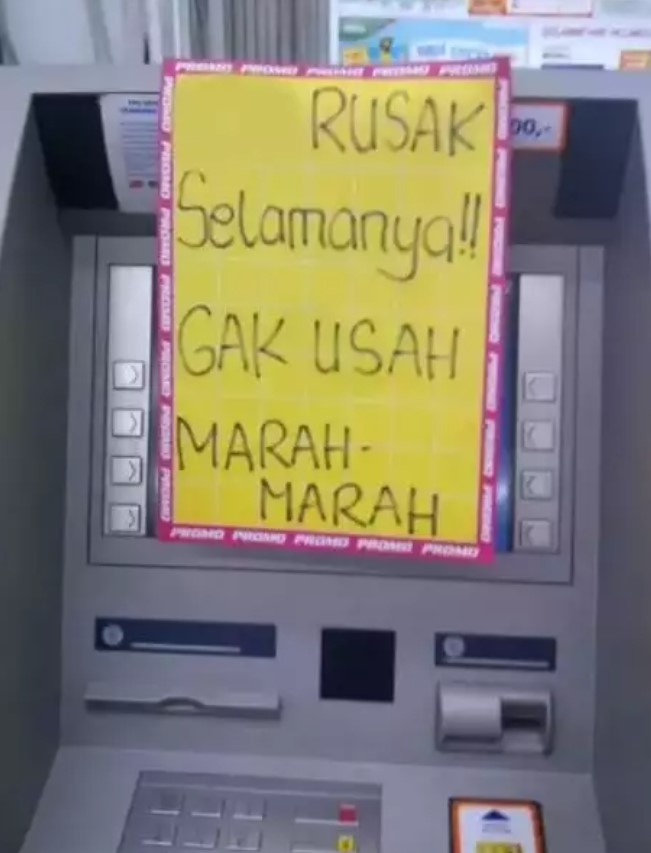 PROMO PROMO PROMO PROMO PROMO
RUSAK
Selamanya!!
GAK USAH
MARAH-
MARAH
PROMO PROMO PROMO PROMO PROMO
00,-